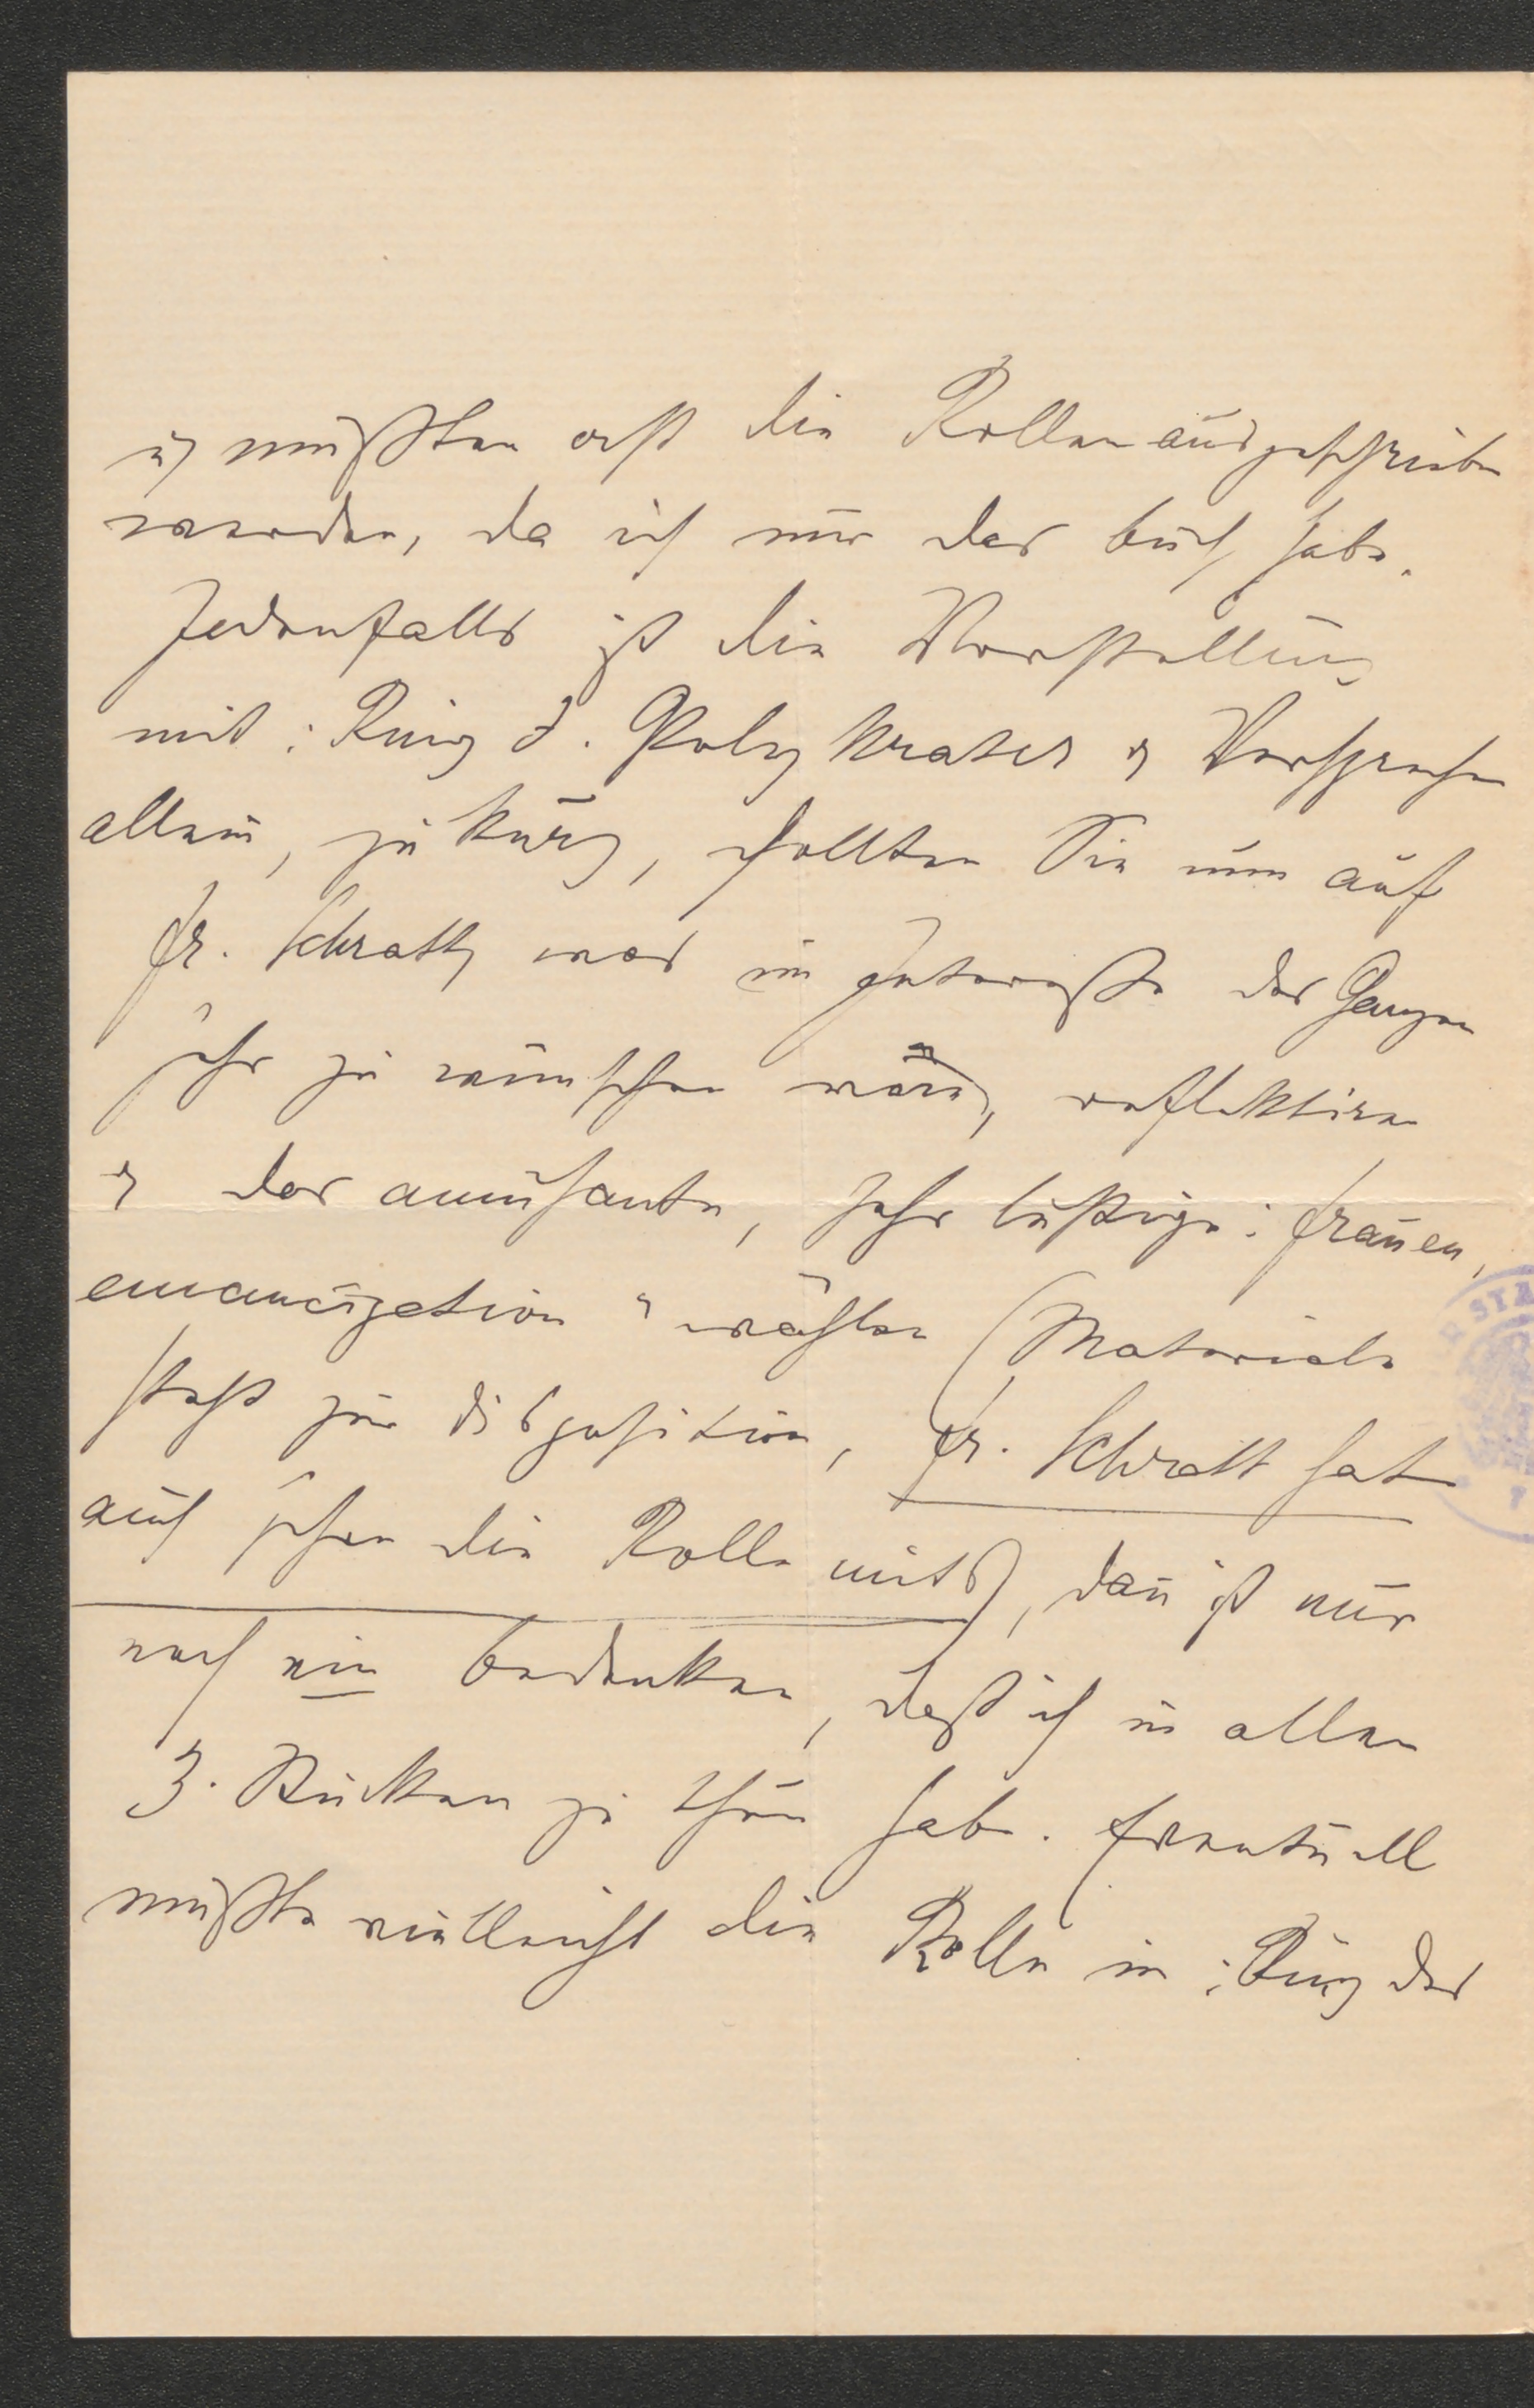 u müßten erst die Rollen ausgeschrieben
werden, da ich nur das Buch habe.
Jedenfalls ist die Vorstellung
mit: Ring d. Polykrates u Versprechen
allein, zu kurz, sollten Sie nun auf
Fr. Schratt, was im Interesse des Ganzen
sehr zu wünschen wäre, reflektiren
u das amüsante, sehr lustige: Frauen,
emancipation " wählen (Materiale
steht zur Disposition, Fr. Schratt hat
auch schon die Rolle mit), dan̄ ist nur
noch ein Bedenken, daß ich in allen
3. Stücken zu thun habe. Eventuell
müßte vielleicht die Rolle in: Ring des